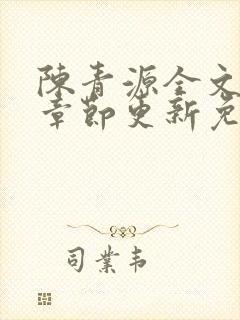 陳青源全文
章節更新免
司業韋